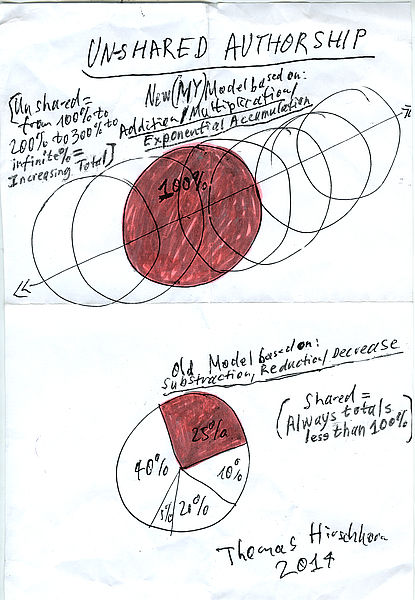 UNSHARED AUTHORSHIP
[Unshared =
from 100% to
200% to 300% to
infinite % =
Increasing Total]
New (MY) Model based on:
Addition/Multiplication/
Exponential Accumulation
100%
Old Model based on:
Substraction/Reduction/Decrease
(Shared =
Always totals
less than 100%)
25%
40%
10%
5%
20%
Thomas Hirschhorn
2014